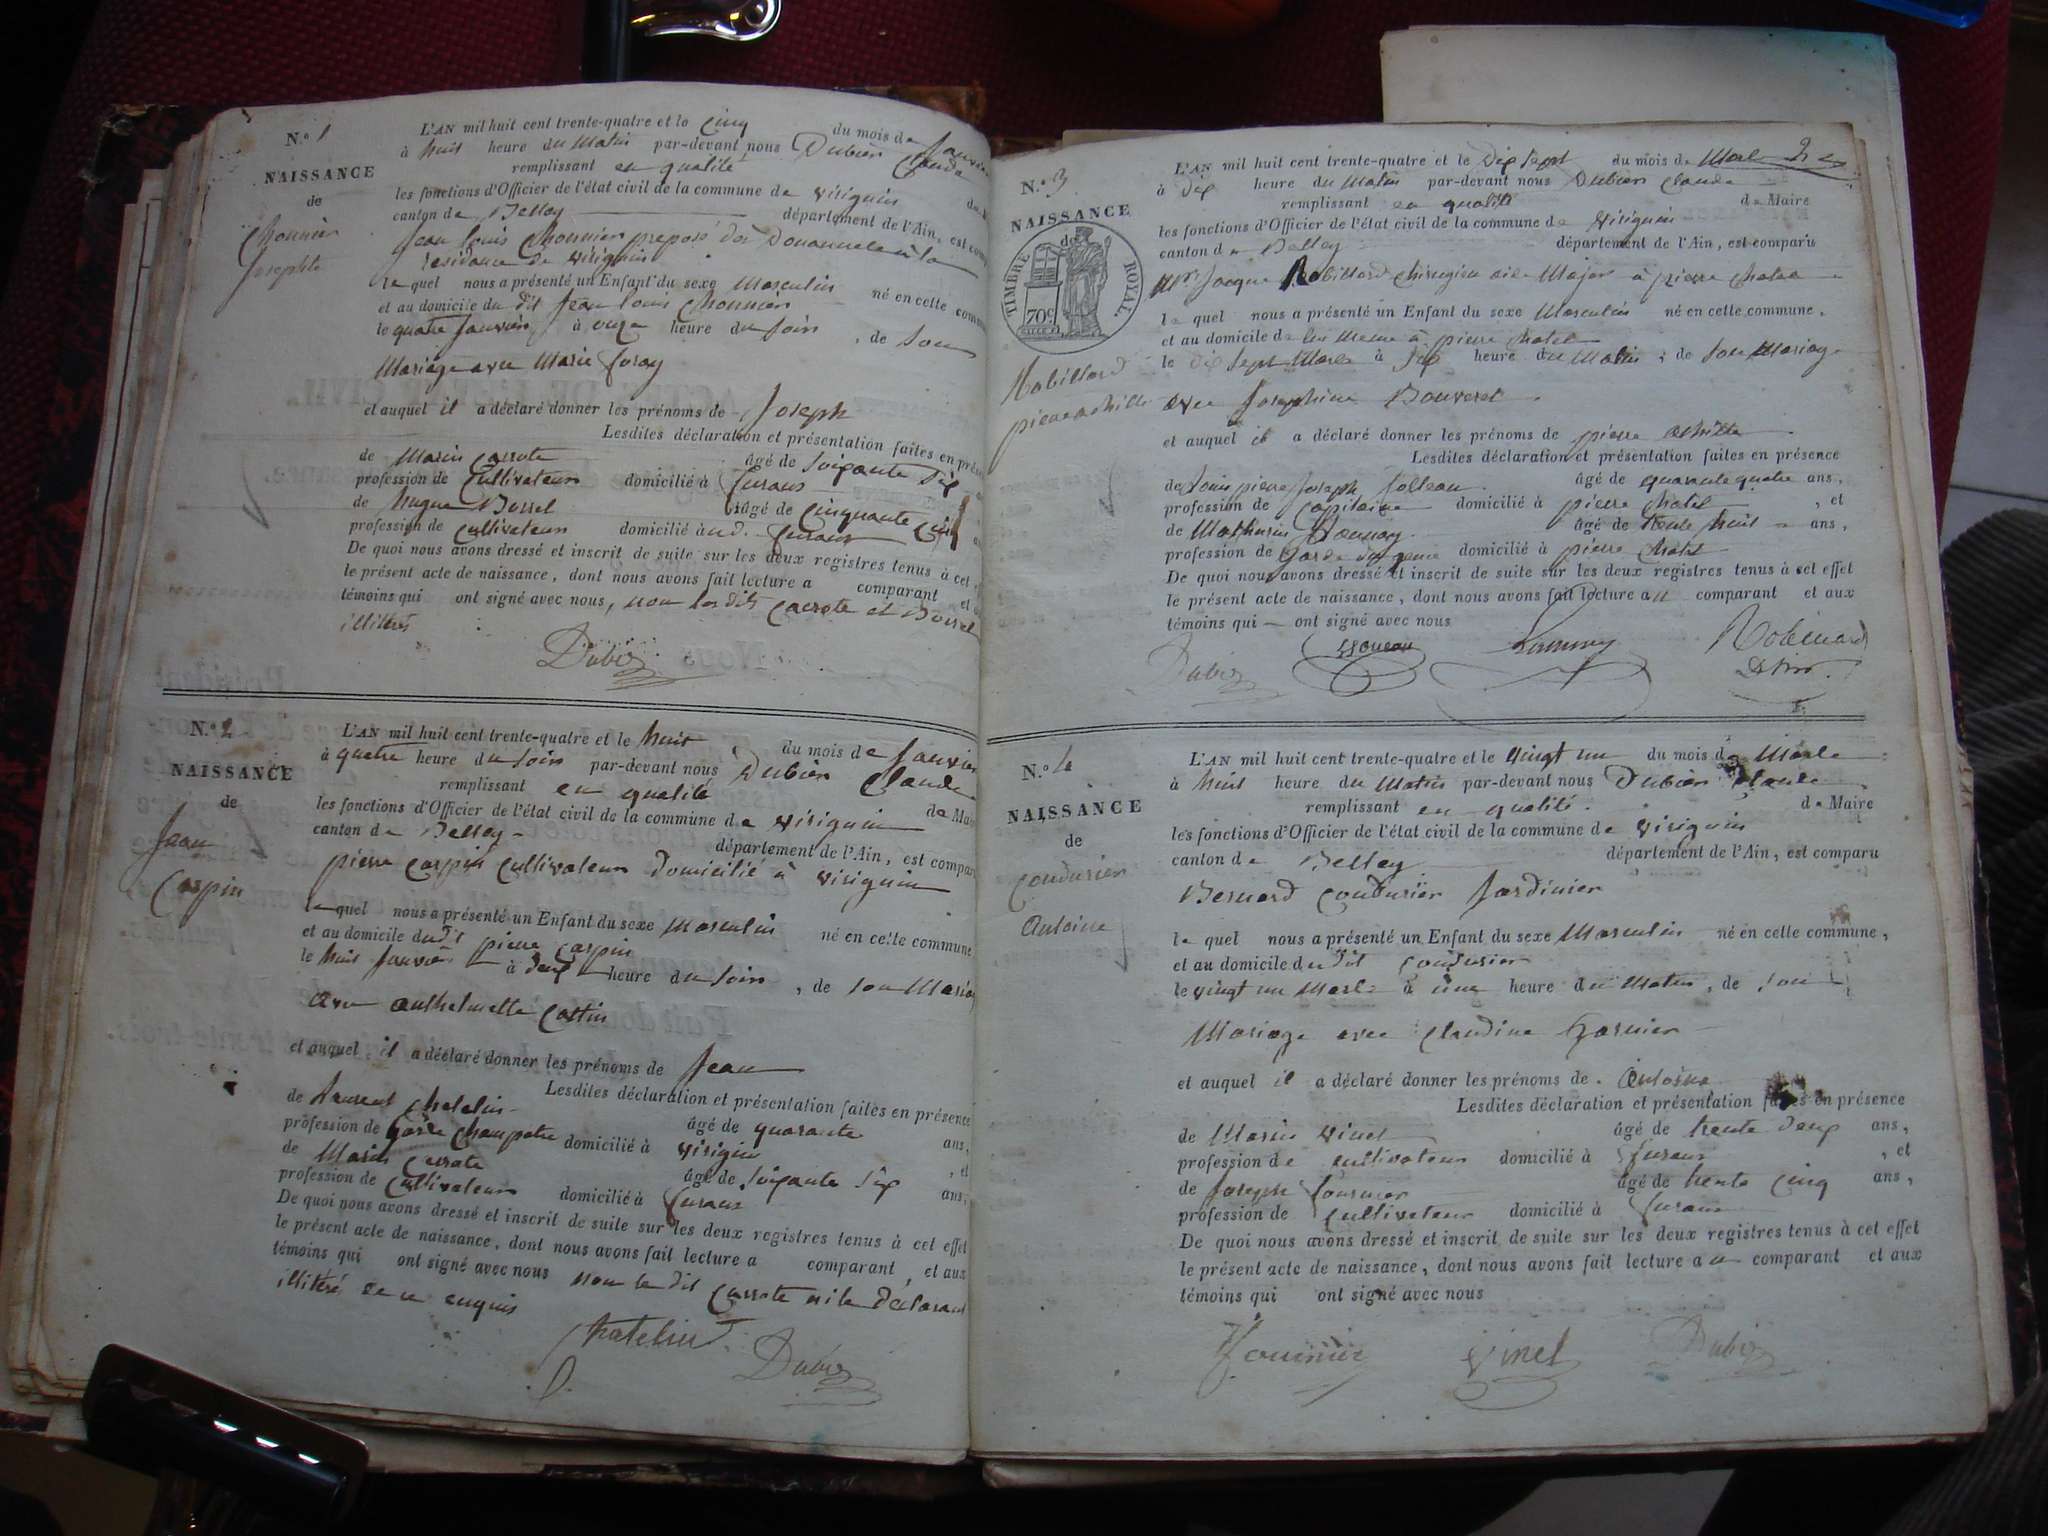 N.° 1
NAISSANCE
de
Chonnier
Josephte
L'AN mil huit cent trente-quatre et le Cinq du mois de Janvier
à huit heure du Matin par-devant nous Dubien Claude
remplissant en qualité
les fonctions d'Officier de l'état civil de la commune de virignin
canton de Belley département de l'Ain, est comp
Jean louis Chonnier preposé des Douannes à la
residance de virignin
le quel nous a présenté un Enfant du sexe Masculin né en cette commu
et au domicile du dit Jean louis Chonnier
le quatre Janvier à onze heure du soir, de son
Mariage avec Marie
et auquel il a déclaré donner les prénoms de Joseph
Lesdites déclaration et présentation faites en prés
de Marin Carrote âgé de soixante dix
profession de Cultivateur domicilié à furans
de hugue Borsel âgé de cinquante cinq
profession de cultivateur domicilié à ud. furans
De quoi nous avons dressé et inscrit de suite sur les deux registres tenus à cet
le présent acte de naissance, dont nous avons fait lecture a comparant et
témoins qui ont signé avec nous, non les dits Carrote et Borsel
illitérés
Dubien
N.° 2
NAISSANCE
de
Jean
Carpin
L'AN mil huit cent trente-quatre et le huit du mois de Janvier
à quatre heure du soir par-devant nous Dubien Claude
remplissant en qualité de Mai
les fonctions d'Officier de l'état civil de la commune de virignin
canton de Belley département de l'Ain, est compar
pierre carpin Cultivateur domicilié à virignin
le quel nous a présenté un Enfant du sexe Masculin né en cette commune
et au domicile dudit pierre carpin
le huit Janvier à deux heure du soir, de son Maria
avec anthelmette Cottin
et auquel il a déclaré donner les prénoms de Jean
Lesdites déclaration et présentation faites en présence
de Laurent Chatelin âgé de quarante ans,
profession de Garde Champetre domicilié à virignin, et
de Marin Carrote âgé de soixante dix ans,
profession de Cultivateur domicilié à furans
De quoi nous avons dressé et inscrit de suite sur les deux registres tenus à cet effet
le présent acte de naissance, dont nous avons fait lecture a comparant, et aux
témoins qui ont signé avec nous non le dit Carrote ni le Declarant
illitérés de ce enquis
Chatelin Dubien
N.° 3
NAISSANCE
de
TIMBRE ROYAL
70c
Robillard
pierre achille
L'AN mil huit cent trente-quatre et le dix sept du mois de Mars 2
à dix heure du Matin par-devant nous Dubien Claude
remplissant en qualité de Maire
les fonctions d'Officier de l'état civil de la commune de virignin
canton de Belley département de l'Ain, est comparu
Mr Jacque Robillard chirugien aide Major à pierre chatel
le quel nous a présenté un Enfant du sexe Masculin né en cette commune,
et au domicile de lui meme à pierre chatel
le dix sept Mars à six heure du Matin, de son Mariage
avec Josephine Bouveret
et auquel il a déclaré donner les prénoms de pierre achille
Lesdites déclaration et présentation faites en présence
de Louis pierre Joseph âgé de quarante quatre ans,
profession de Capitaine domicilié à pierre chatel, et
de Mathurin âgé de trente huit ans,
profession de Garde du genie domicilié à pierre chatel
De quoi nous avons dressé et inscrit de suite sur les deux registres tenus à cet effet
le présent acte de naissance, dont nous avons fait lecture au comparant et aux
témoins qui ont signé avec nous
Dubien Robillard
N.° 4
NAISSANCE
de
Coudurier
Antoine
L'AN mil huit cent trente-quatre et le vingt un du mois de Mars
à huit heure du Matin par-devant nous Dubien Claude
remplissant en qualité de Maire
les fonctions d'Officier de l'état civil de la commune de virignin
canton de Belley département de l'Ain, est comparu
Bernard Coudurier Jardinier
le quel nous a présenté un Enfant du sexe Masculin né en cette commune,
et au domicile dudit coudurier
le vingt un Mars à une heure du Matin, de son
Mariage avec Claudine Garnier
et auquel il a déclaré donner les prénoms de Antoine
Lesdites déclaration et présentation faites en présence
de Marin Vinet âgé de trente deux ans,
profession de cultivateur domicilié à furans, et
de Joseph fournier âgé de trente cinq ans,
profession de Cultivateur domicilié à furans
De quoi nous avons dressé et inscrit de suite sur les deux registres tenus à cet effet
le présent acte de naissance, dont nous avons fait lecture au comparant et aux
témoins qui ont signé avec nous
Fournier Vinet Dubien